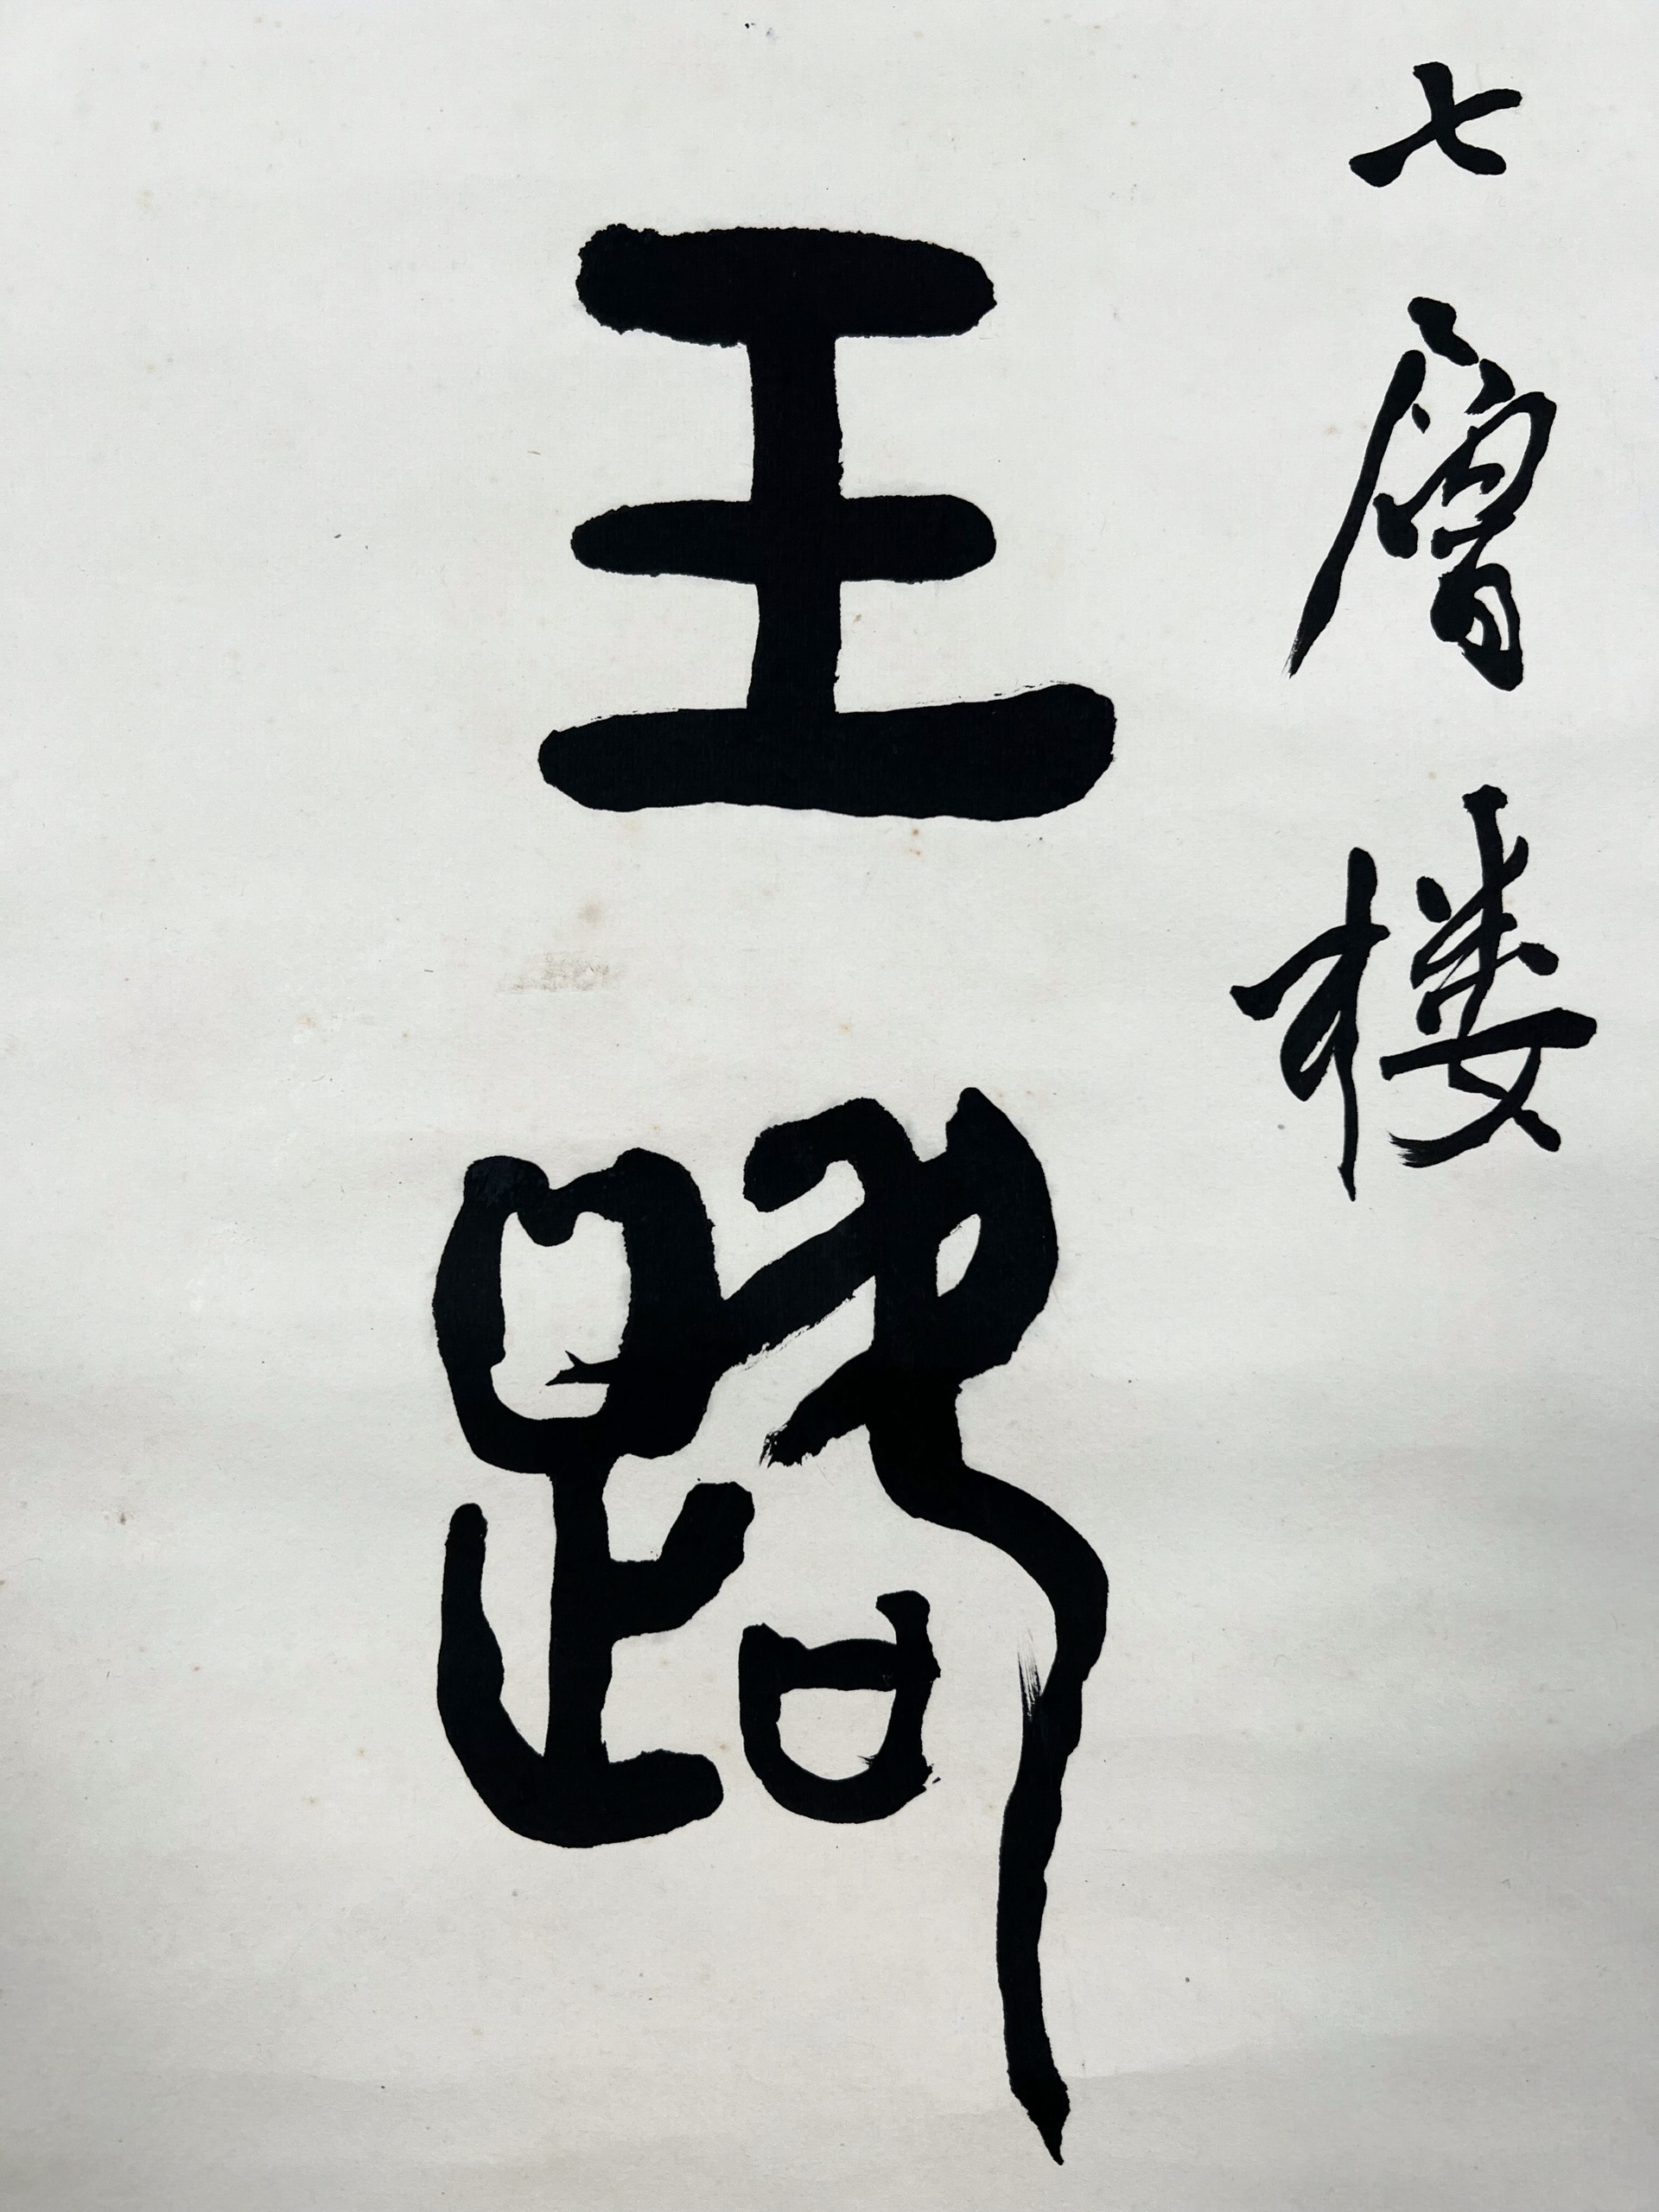 七層楼
王路